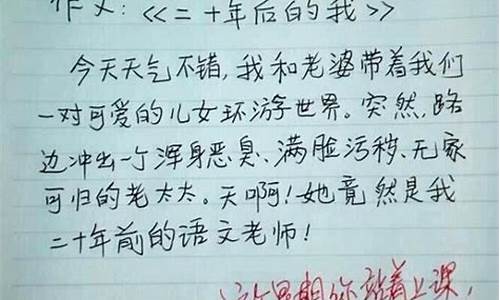 作文：《二十年后的我》
今天天气不错，我和老婆带着我们
一对可爱的儿女环游世界。突然，路
边冲出一个浑身恶臭、满脸污秽、无家
可归的老太太。天啊！她竟然是我
二十年前的语文老师！
这个星期你站着上课，